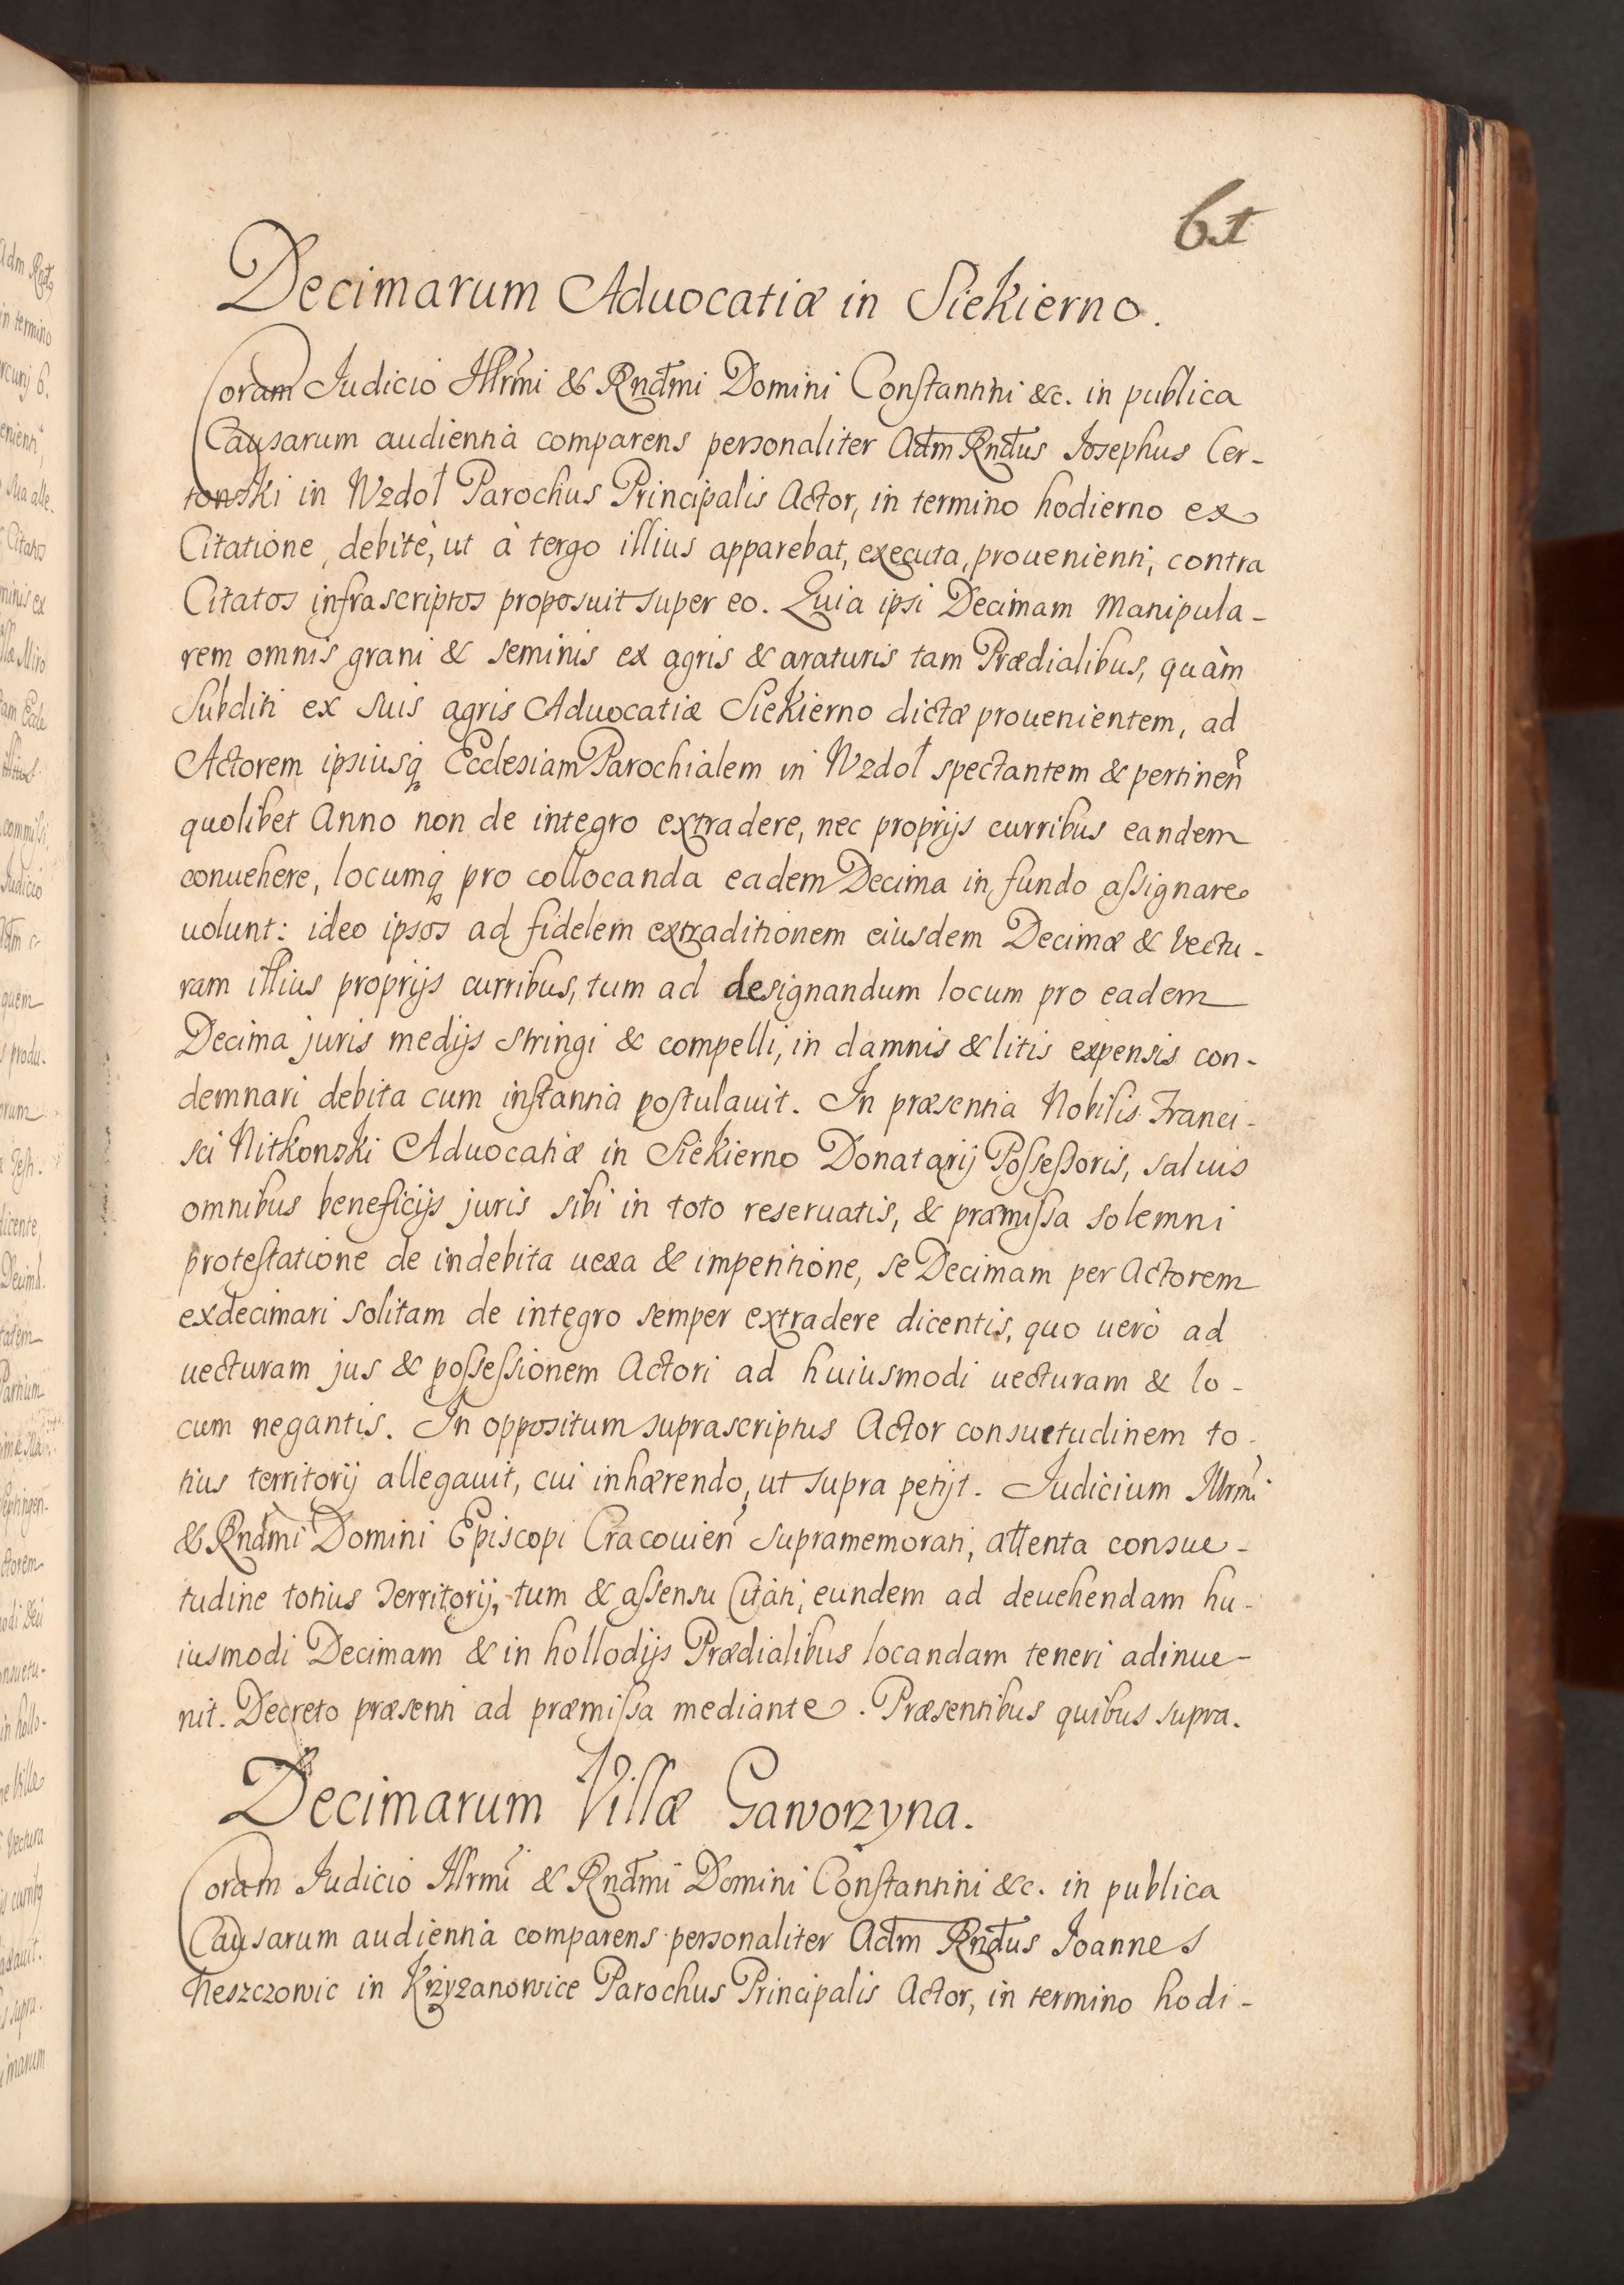 61
Decimarum Aduocatiæ in Siekierno.
Coram Judicio Illrmi & Rndmi Domini Constantini &c. in publica
Causarum audientia comparens personaliter Adm Rndus Josephus Cer-
tonski in Wzdoł Parochus Principalis Actor, in termino hodierno ex
Citatione, debitè, ut à tergo illius apparebat, executa, prouenienti, contra
Citatos infrascriptos proposuit super eo. Quia ipsi Decimam Manipula-
rem omnis grani & seminis ex agris & araturis tam Prædialibus, quàm
Subditi ex suis agris Aduocatiæ Siekierno dictæ prouenientem, ad
Actorem ipsiusq Ecclesiam Parochialem in Wzdoł spectantem & pertinen
quolibet Anno non de integro extradere, nec proprijs curribus eandem
conuehere, locumq pro collocanda eadem Decima in fundo assignare
uolunt: ideo ipsos ad fidelem extraditionem eiusdem Decimæ & Vectu-
ram illius proprijs curribus, tum ad designandum locum pro eadem
Decima juris medijs stringi & compelli, in damnis & litis expensis con-
demnari debita cum instantia postulauit. In præsentia Nobilis Franci-
sci Nitkonski Aduocatiæ in Siekierno Donatarij Possessoris, saluis
omnibus beneficijs juris sibi in toto reseruatis, & præmissa solemni
protestatione de indebita uexa & impetitione, se Decimam per Actorem
exdecimari solitam de integro semper extradere dicentis, quo uerò ad
uecturam jus & possessionem Actori ad huiusmodi uecturam & lo-
cum negantis. In oppositum suprascriptus Actor consuetudinem to-
tius territorij allegauit, cui inhærendo, ut supra petijt. Judicium Illrmi
& Rndmi Domini Episcopi Cracouien supramemorati, attenta consue-
tudine totius Territorij, tum & assensu Citati, eundem ad deuehendam hu-
iusmodi Decimam & in hollodijs Prædialibus locandam teneri adinue-
nit. Decreto præsenti ad præmissa mediante. Præsentibus quibus supra.
Decimarum Villæ Gaworzyna.
Coram Judicio Illrmi & Rndmi Domini Constantini &c. in publica
Causarum audientia comparens personaliter Adm Rndus Joannes
Neszczowic in Krzyzanowice Parochus Principalis Actor, in termino hodi-